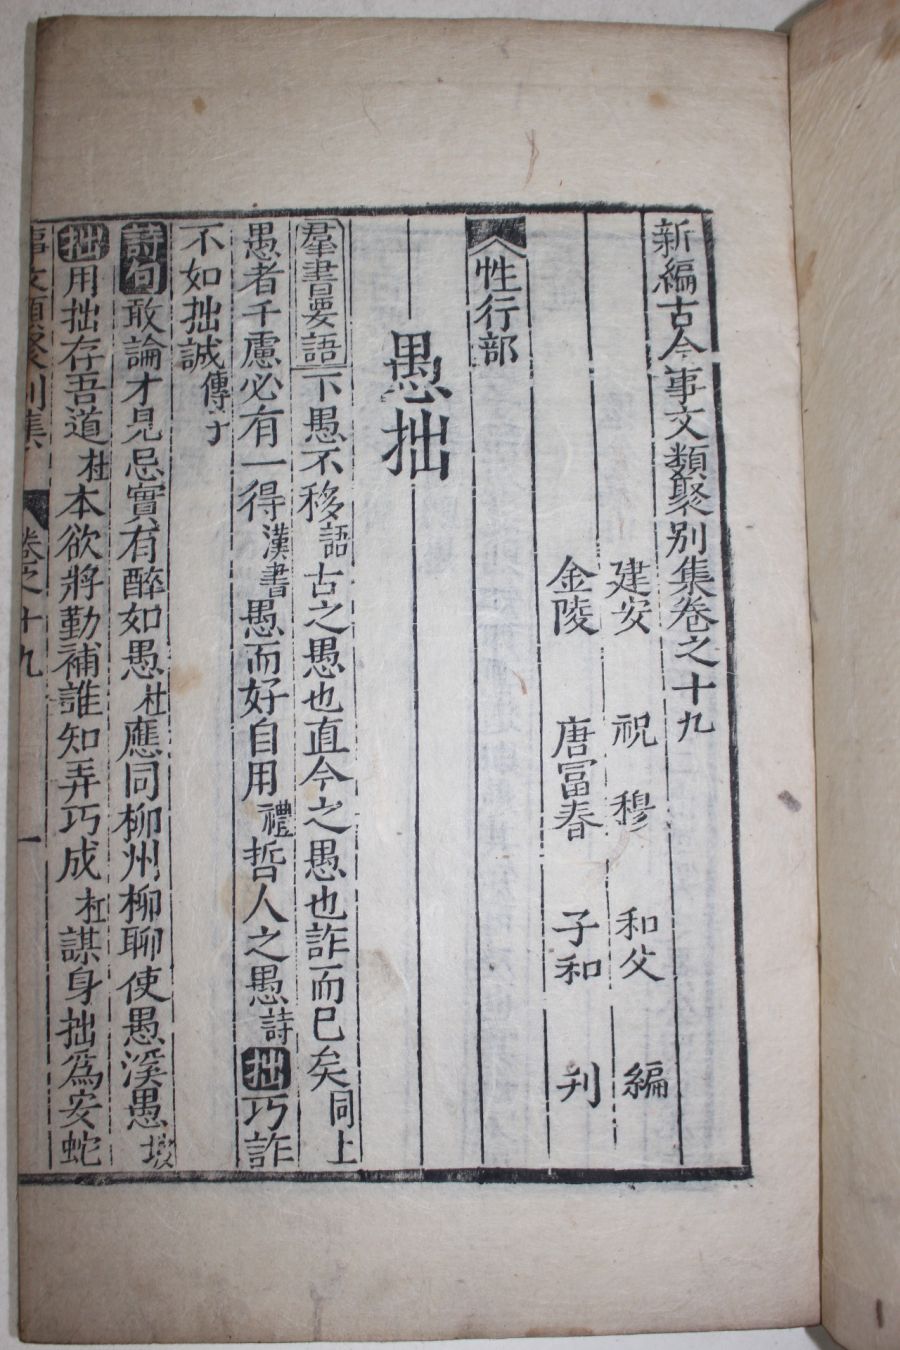 新編古今事文類聚别集卷之十九
建安 祝 穆 和父 編
金陵 唐冨春 子和 刋
性行部
愚拙
羣書要語下愚不移語古之愚也直今之愚也詐而已矣同上
愚者千慮必有一得漢書愚而好自用禮哲人之愚詩拙巧詐
不如拙誠傳子
詩句敢論才見忌實有醉如愚杜應同柳州柳聊使愚溪愚坡
拙用拙存吾道杜本欲將勤補誰知弄巧成杜謀身拙爲安蛇
事文類聚别集 卷之十九 一